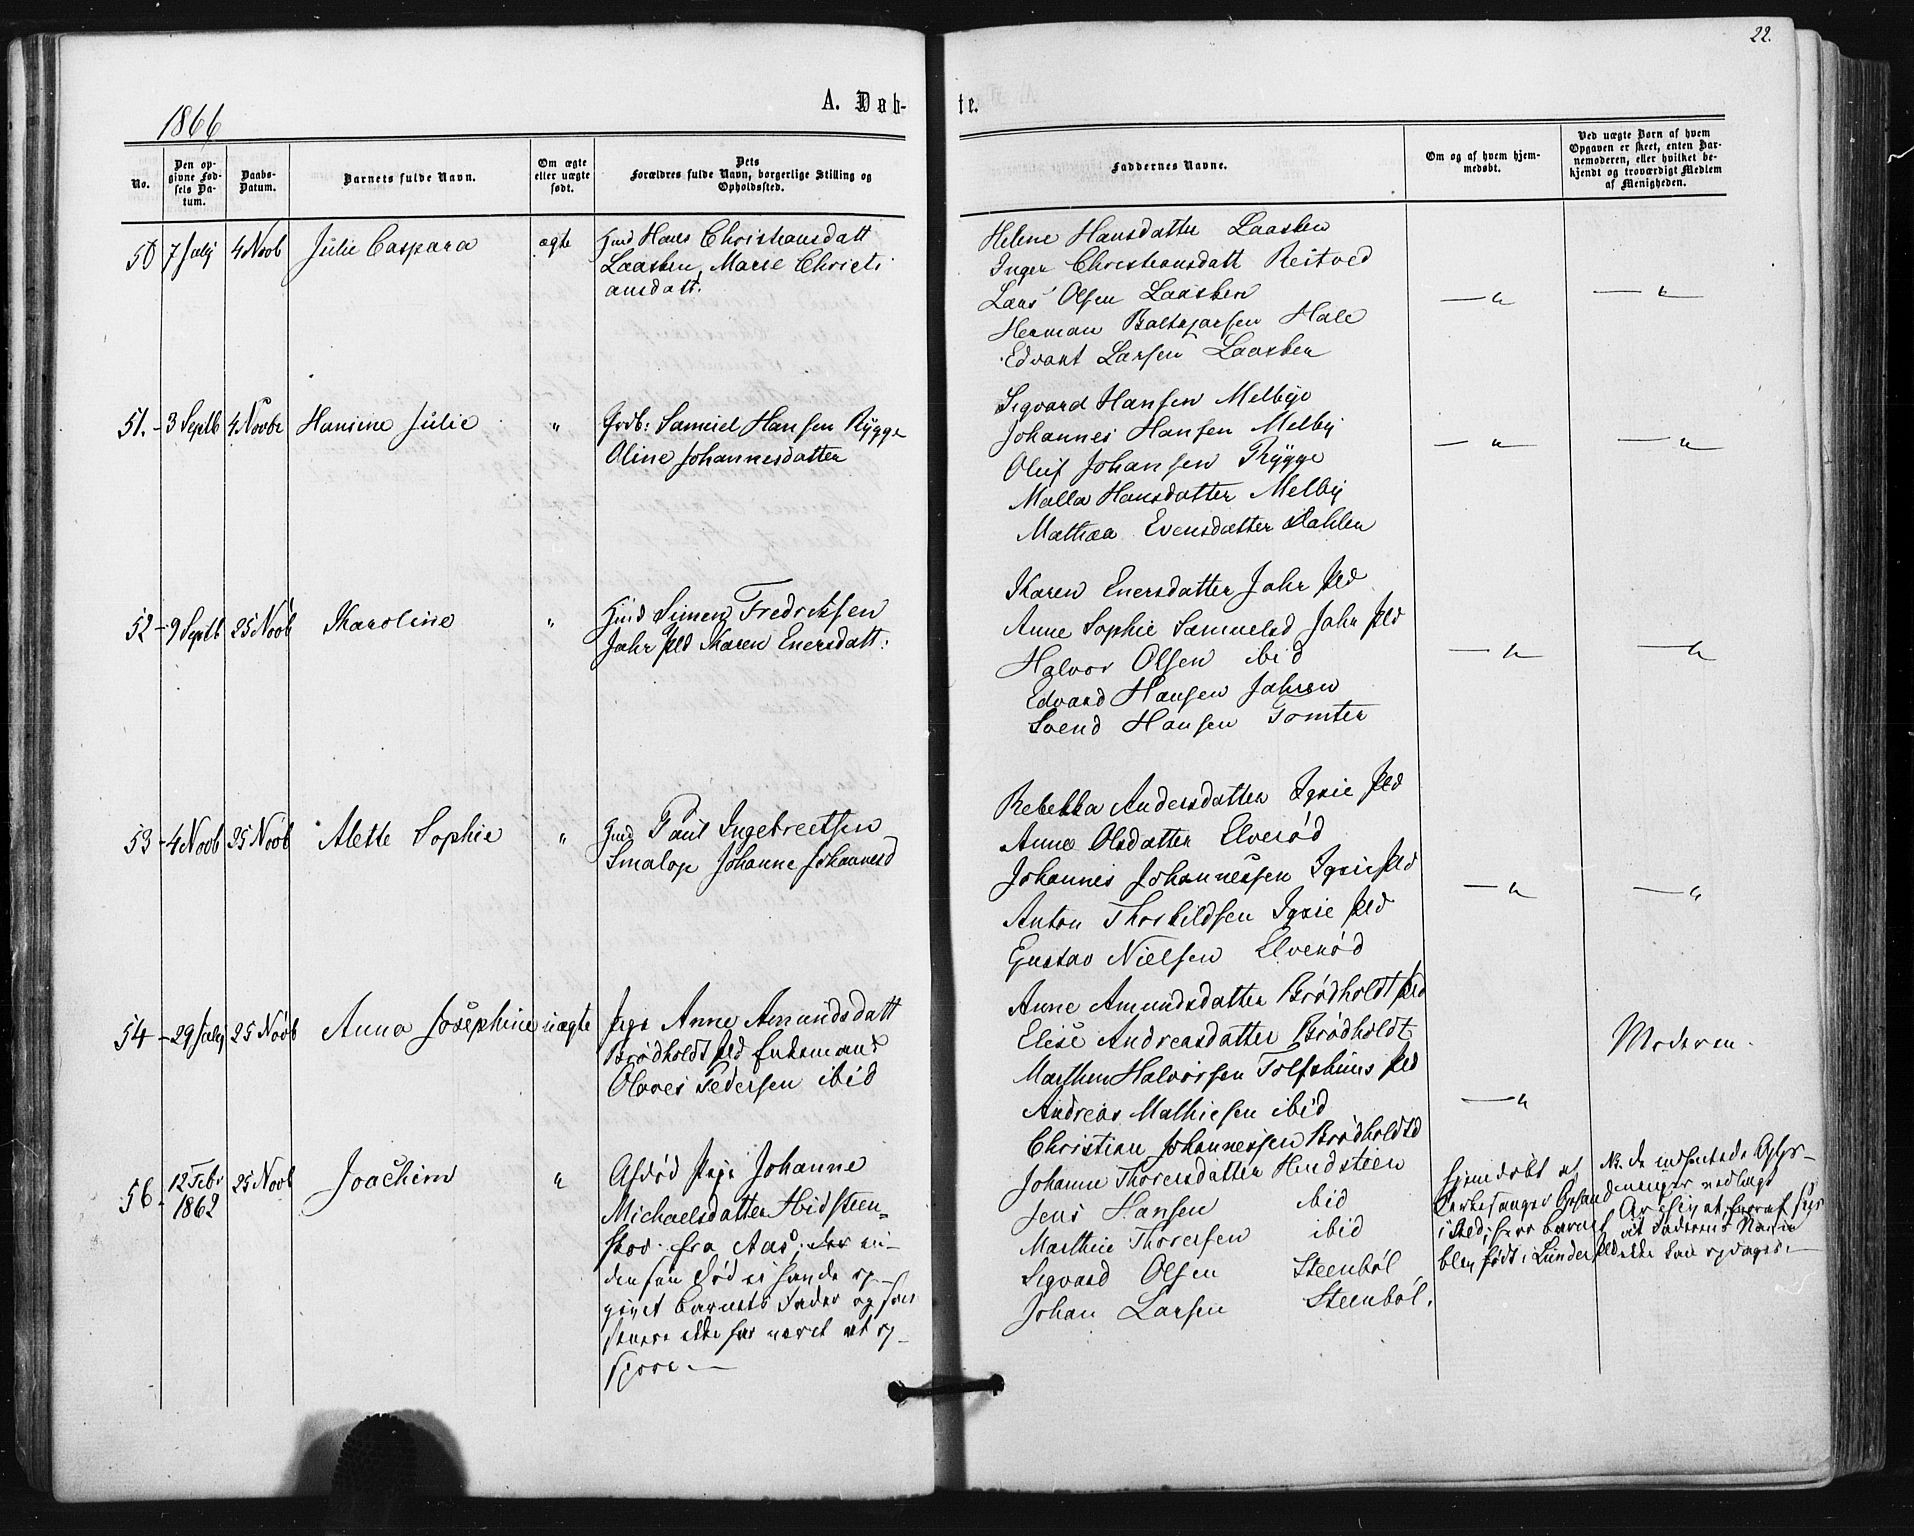 22.
1866
A. Døb-
te.
No.
Den op-
givne Fød-
sels Da-
tum.
Daabs-
Datum.
Barnets fulde Navn.
Om ægte
eller uægte
født.
Dets
Forældres fulde Navn, borgerlige Stilling og
Opholdssted.
Faddernes Navne.
Om og af hvem hjem-
medøbt.
Ved uægte Børn af hvem
Opgaven er skeet, enten Bar-
nemoderen, eller hvilket be-
kjendt og troværdigt Medlem
af Menigheden.
50 7 July 4 Novb Julie Caspara ægte
Hans Christiansdatt
Laasken, Marie Christi
ansdatt.
Helene Hansdatter Laasken
Inger Christiansdatt Reitved
Lars Olsen Laasken
Herman Baltzarsen Hale
Edvart Larsen Laasken
— " — "
51. - 3 Septb 4 Novbr Hansine Julie "
Grdb: Samuel Hansen Rygge
Oline Johannesdatter
Sigvard Hansen Melbye
Johannes Hansen Melby
Oluf Johansen Rygge
Malla Hansdatter Melby
Mathea Evensdatter Dahlen
— " — "
52 - 9 Septb 25 Novb Karoline "
Simen Fredriksen
Jahr Karen Enersdatt:
Karen Enersdatter Jahr
Anne Sophie Samuelsd Jahr
Halvor Olsen ibid
Edvard Hansen Jahren
Svend Hansen Tomter
— " — "
53 - 4 Novb 25 Novb Alette Sophie "
Paul Ingebretsen
Smalop Johanne Johannesd
Rebekka Andersdatter
Anne Olsdatter Elverød
Johannes Johannessen
Anton Thorkildsen
Gustav Nielsen Elverød
— " — "
54 - 29 July 25 Novb Anna Josephine uægte
Pige Anne Amundsdatt
Brødholdt Enkemand
Olaves Pedersen ibid
Anne Amundsdatter Brødholdt
Elise Andreasdatter Brødholdt
Marthen Halvorsen
Andreas Mathiesen ibid
Christian Johannessen Brødholdt
— "
Moderen.
56 - 12 Febr
1862 25 Novb Joachim "
Afdød Pige Johanne
Michaelsdatter Hidsteen-
skov fra Aas; der si-
den sin Død ei havde op-
givet Barnets Fader og som
senere ikke har været at op-
spore. —
Johanne Thoresdatter Hindsteen
Jens Hansen ibid
Marthie Thoresen ibid
Sigvard Olsen Steenbøl
Johan Larsen Steenbøl.
Hjemdøbt af
Kirkesanger
hvor Barnet
blev født i
No. de indsendte Oplys-
ninger
at Faderens Navn
ikke kan opdages. —